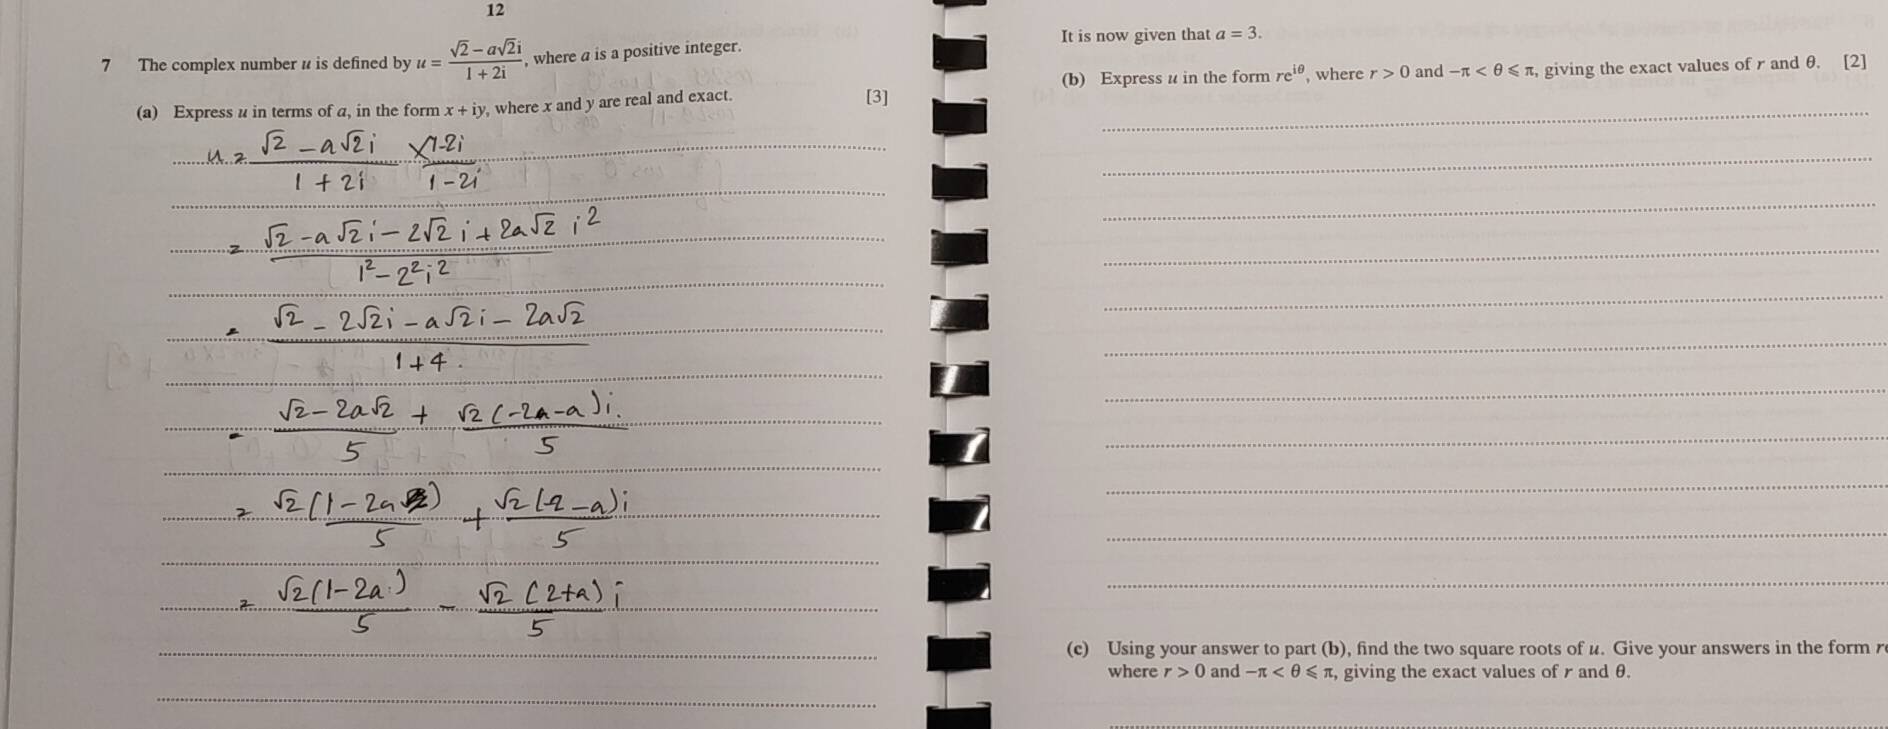 12
7 The complex number u is defined by u = (√2 − a√2i)/(1 + 2i), where a is a positive integer.
(a) Express u in terms of a, in the form x + iy, where x and y are real and exact. [3]
u = (√2 − a√2i)/(1 + 2i) × (1-2i)/(1-2i)
= (√2 − a√2i − 2√2i + 2a√2i²)/(1² − 2²i²)
= (√2 − 2√2i − a√2i − 2a√2)/(1+4).
= (√2 − 2a√2)/5 + (√2(-2a-a)i.)/5
= √2(1−2a)/5 + √2(-2−a)i/5
= √2(1−2a.)/5 − √2(2+a)i/5
It is now given that a = 3.
(b) Express u in the form re^(iθ), where r > 0 and −π < θ ⩽ π, giving the exact values of r and θ. [2]
(c) Using your answer to part (b), find the two square roots of u. Give your answers in the form
where r > 0 and −π < θ ⩽ π, giving the exact values of r and θ.